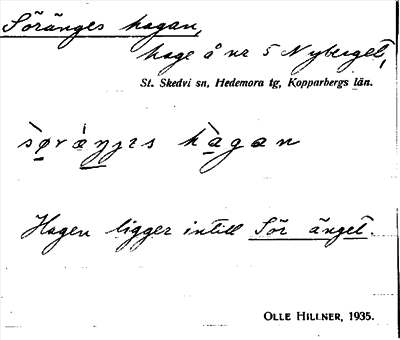 Söränges hagan,
hage å nr 5 Nyberget,
St. Skedvi sn, Hedemora tg, Kopparbergs län.
hagan
Hagen ligger intill Sör änget.
OLLE HILLNER, 1935.